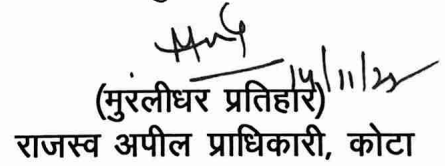 14/11/22
(मुरलीधर प्रतिहार)
राजस्व अपील प्राधिकारी, कोटा